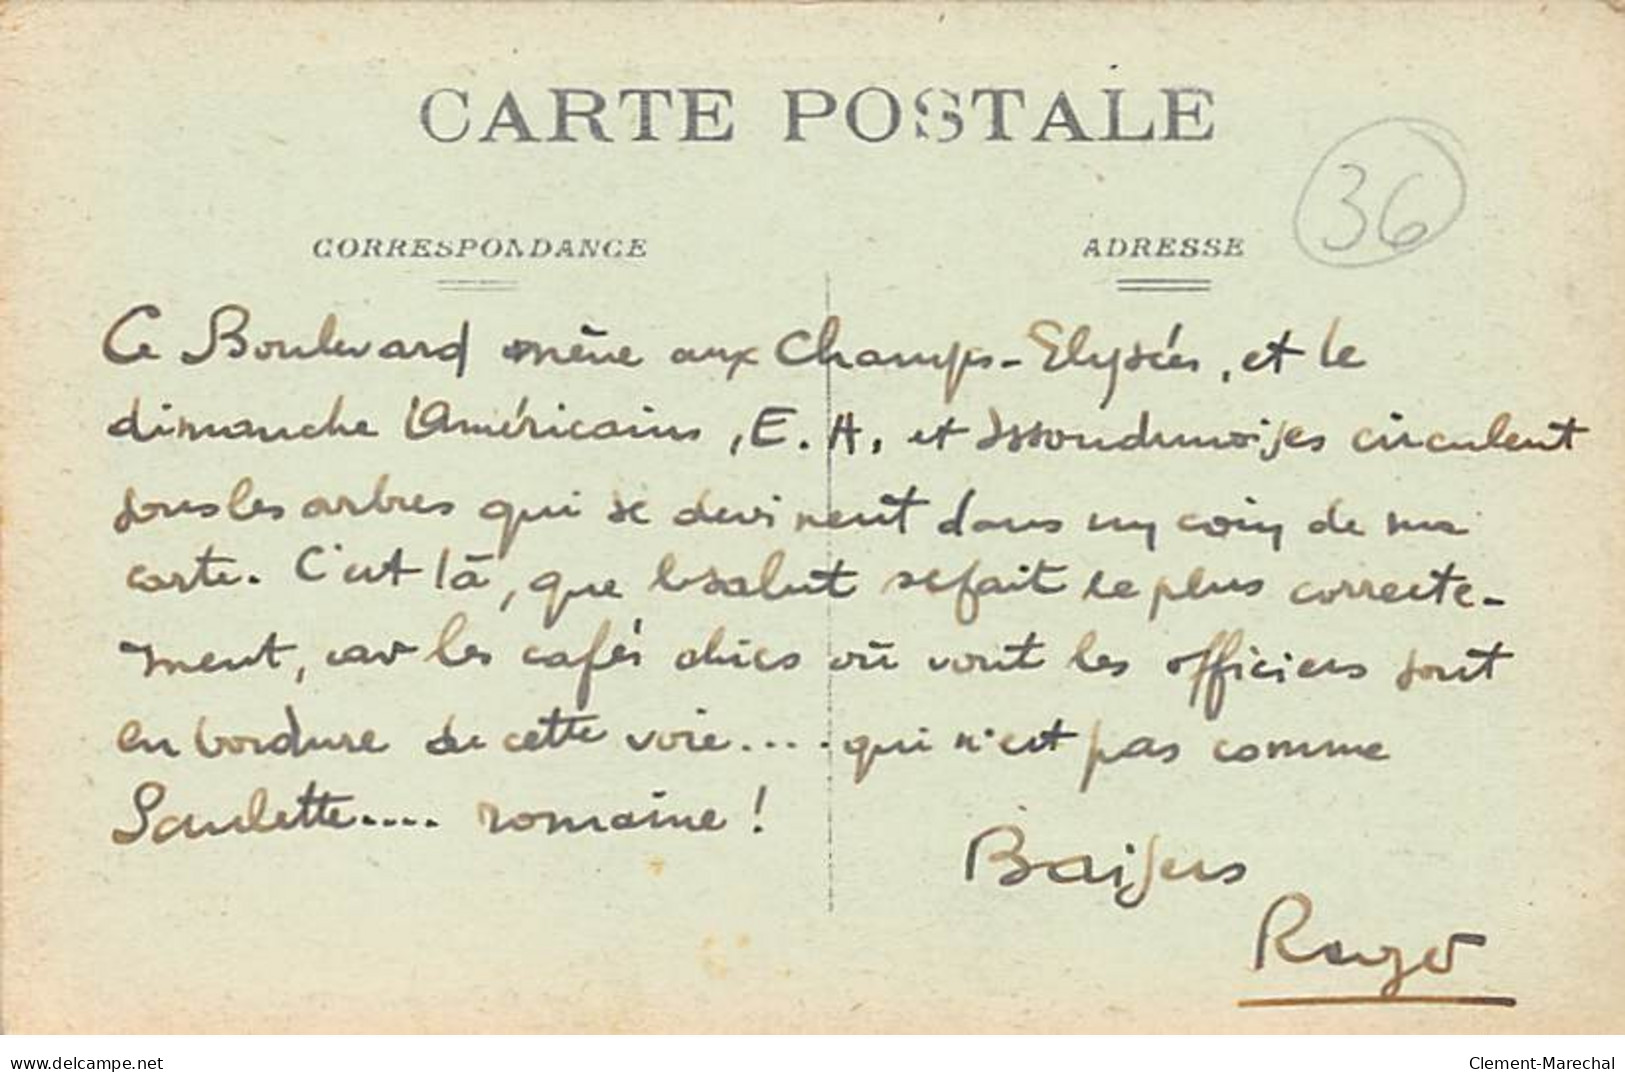 CARTE POSTALE
36
CORRESPONDANCE
ADRESSE
Ce Boulevard mène aux Champs-Elysées, et le
dimanche Américains, E. A, et Issoudunoises circulent
sous les arbres qui se devinent dans un coin de ma
carte. C'est là, que le salut se fait le plus correcte-
ment, car les cafés chics où vont les officiers sont
en bordure de cette voie.... qui n'est pas comme
.... romaine !
Baisers
Roger
www.delcampe.net
Clement-Marechal